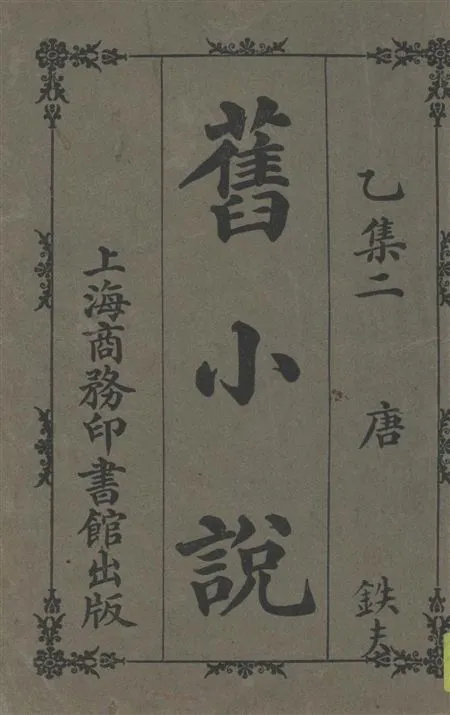 乙集二 唐 鉄夫
舊小說
上海商務印書館出版